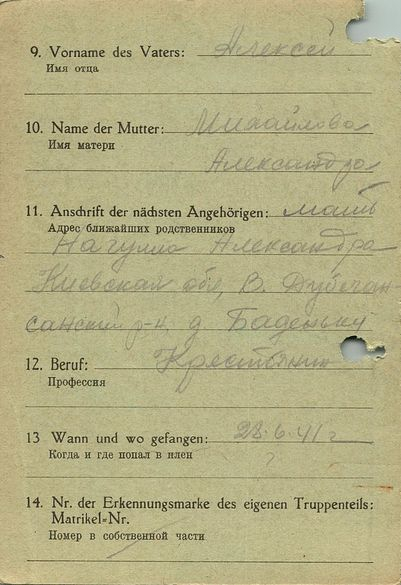 9. Vorname des Vaters: Алексей
Имя отца
10. Name der Mutter: Михайлова
Имя матери
Александра
11. Anschrift der nächsten Angehörigen: мать
Адрес ближайших родственников
Александра
Киевская обл, В. Дубечан-
санский р-н, д.
12. Beruf: Крестьянин
Профессия
13 Wann und wo gefangen: 28.6.41 г
Когда и где попал в плен
?
14. Nr. der Erkennungsmarke des eigenen Truppenteils:
Matrikel=Nr.
Номер в собственной части